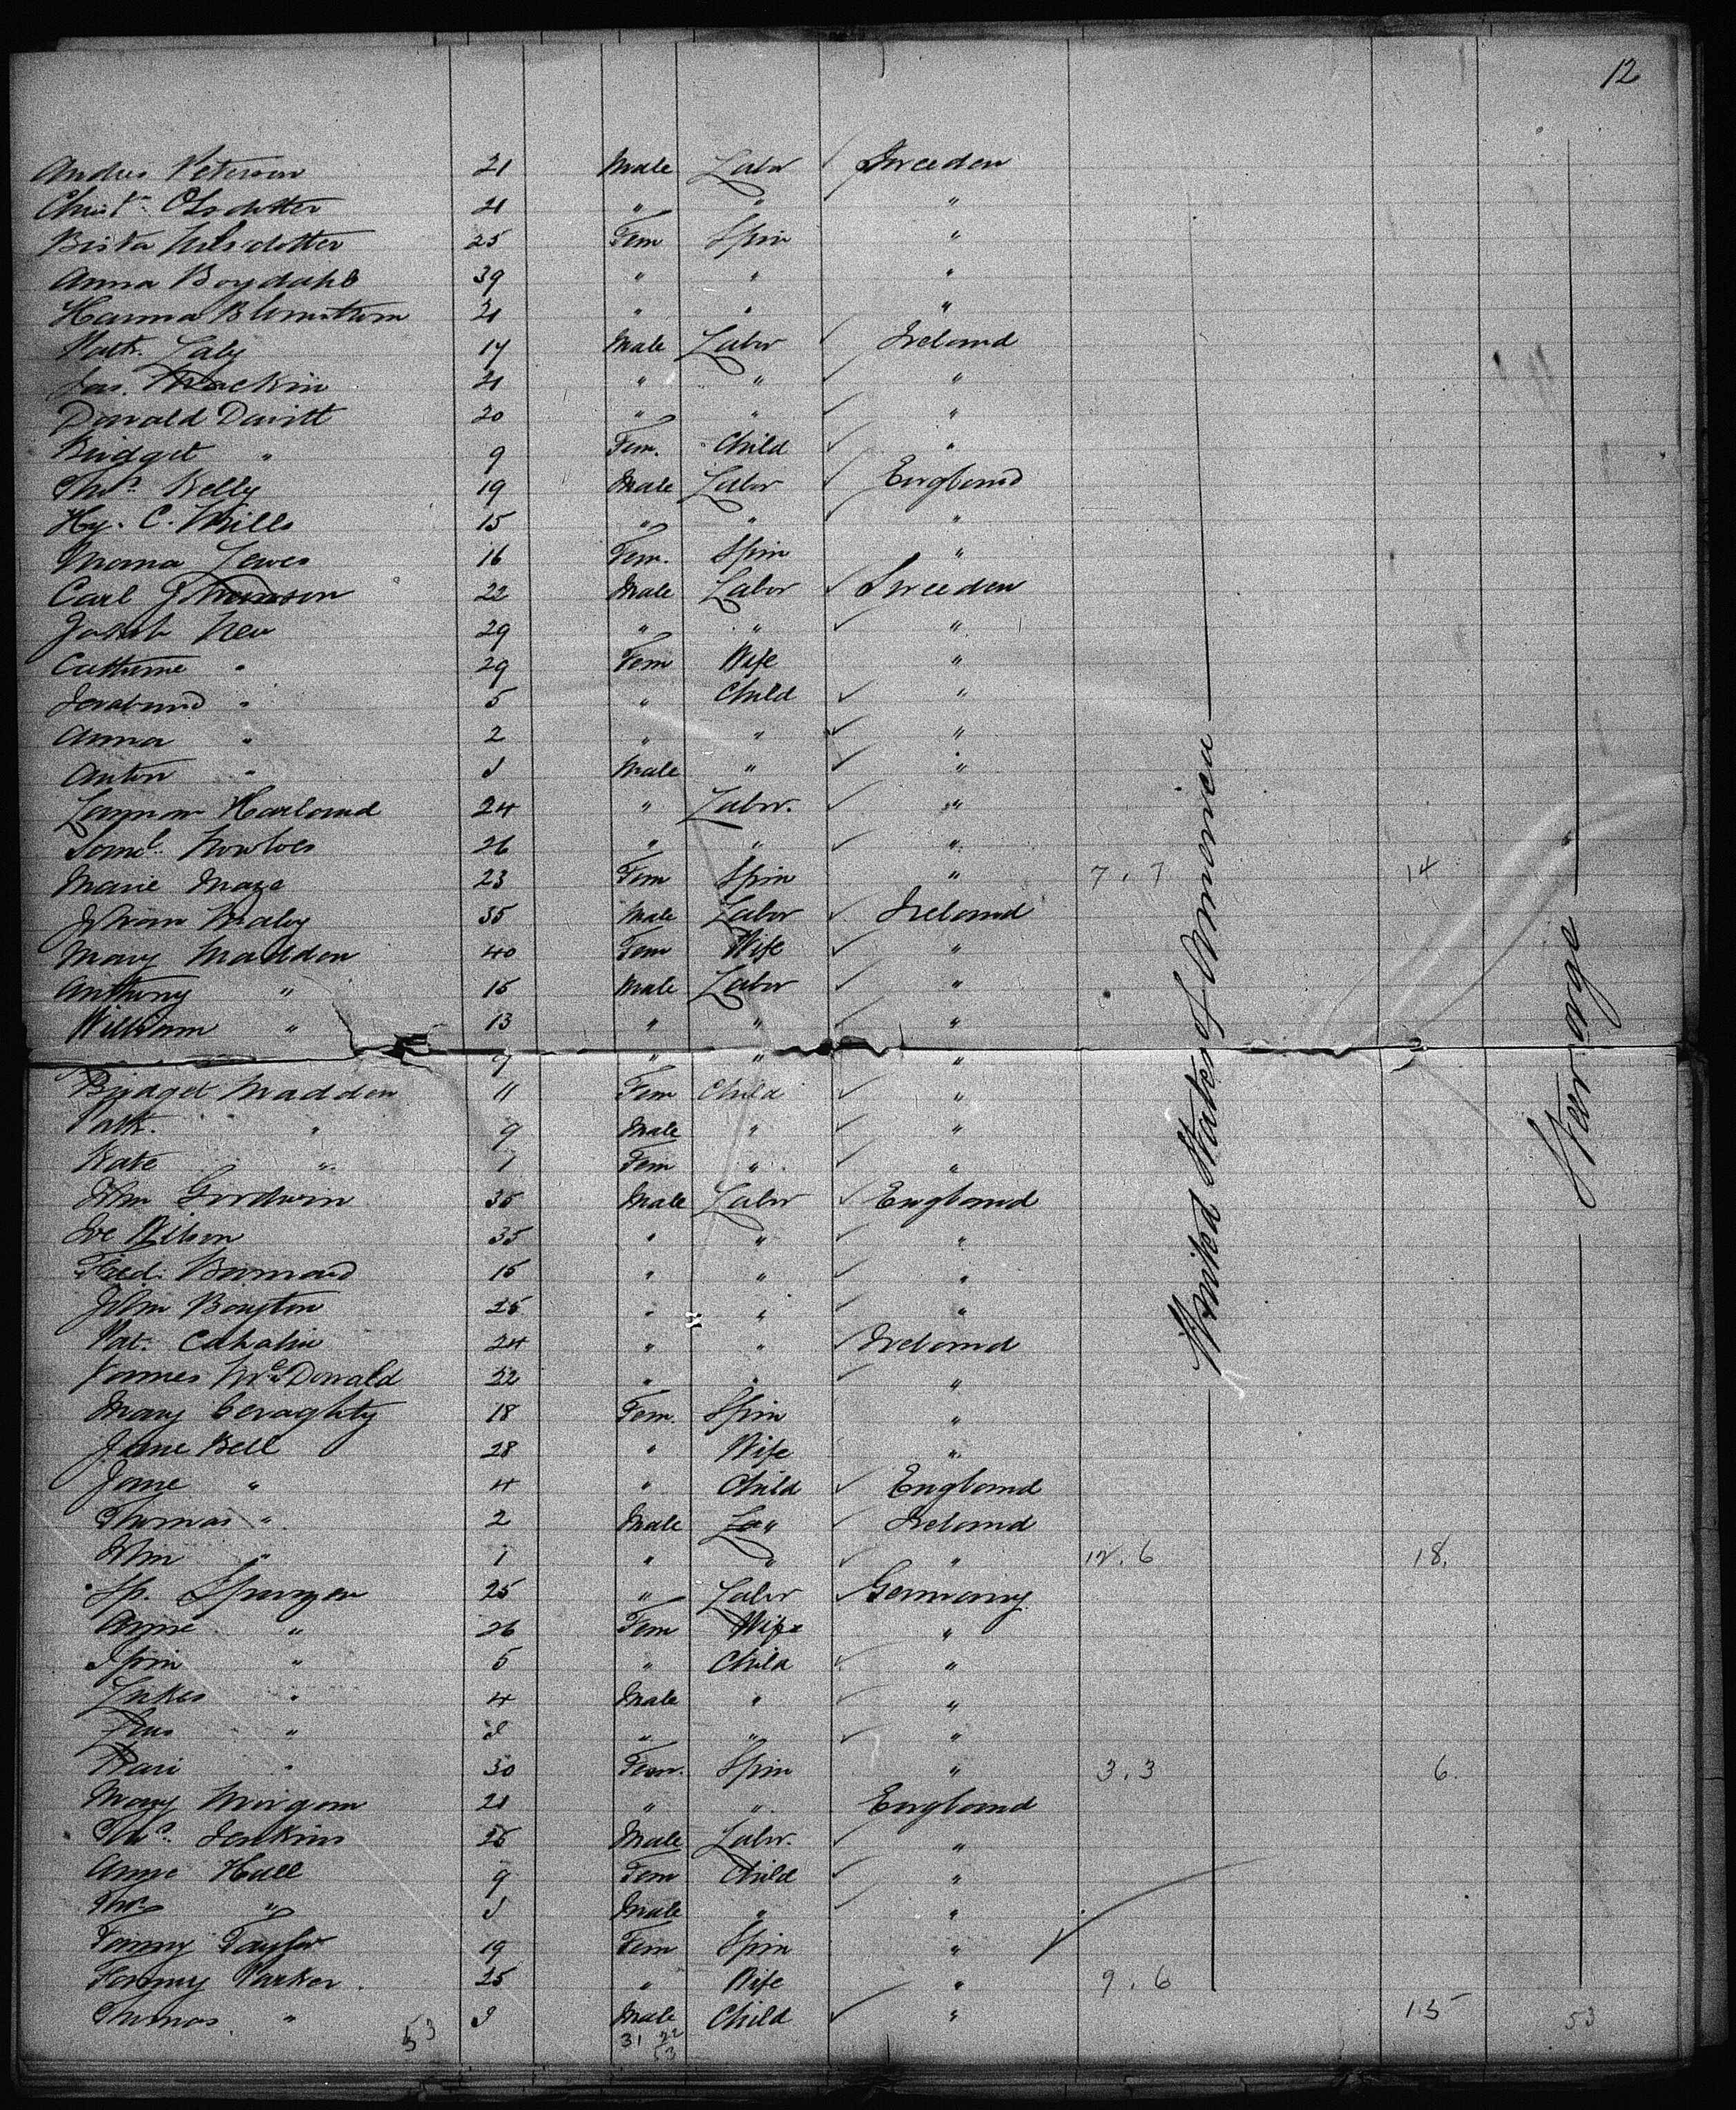 12
Andres Peterson 21 Male Labr ✓ Sweeden
Christn Olsdotter 21 " " "
Bista Nilsdotter 25 Fem Spin "
Anna Boydahl 39 " " "
Hanna Blomstrom 21 " " "
Patk. Laly 17 Male Labor ✓ Ireland
Jas. Mackin 21 " " ✓ "
Donald Davitt 20 " " ✓ "
Bridget " 9 Fem. Child ✓ "
Thos. Kelly 19 Male Labor ✓ England
Hy. C. Mills 15 " " ✓ "
Lewes 16 Fem. Spin "
Carl Thomson 22 Male Labor ✓ Sweeden
Jakob Neu 29 " " ✓ "
Catherine " 29 Fem Wife "
" 5 " Child ✓ "
Anna " 2 " " ✓ "
Anton " I Male " ✓ "
Harland 24 " Labor. ✓ "
Saml. 26 " " ✓ "
Marie Maze 23 Fem Spin " 7.7 14
Maley 35 Male Labor ✓ Ireland
Mary Madden 40 Fem Wife ✓ "
Anthony " 15 Male Labor ✓ "
William " 13 " " ✓ "
9 " " "
Bridget Madden 11 Fem Child ✓ "
Patk. " 9 Male " ✓ "
Kate " 1 Fem " ✓ "
Goodwin 35 Male Labor ✓ England
Joe Wilson 35 " " ✓ "
Fred. Barnard 15 " " ✓ "
John Boyton 25 " " ✓ "
Pat. Cahalin 24 " " ✓ Ireland
James McDonald 22 " " ✓ "
Mary Geraghty 18 Fem. Spin "
Jane Bell 28 " Wife "
Jane " 4 " Child ✓ England
Thomas " 2 Male " ✓ Ireland
" 1 " " ✓ " 12.6 18.
Sp. 25 " Labor ✓ Germany
Anne " 26 Fem Wife "
" 5 " Child ✓ "
Lukes " 4 Male " ✓ "
" I " " ✓ "
" 30 Fem. Spin " 3.3 6.
Mary Morgan 21 " " England
Thos. Jenkins 25 Male Labr. ✓ "
Anne Hall 9 Fem Child ✓ "
" I Male " ✓ "
Fanny Taylor 19 Fem Spin "
Fanny Parker 25 " Wife " 9.6
Thomas " I Male Child ✓ " 15 53
53 31 22
53
United States of America
Steerage